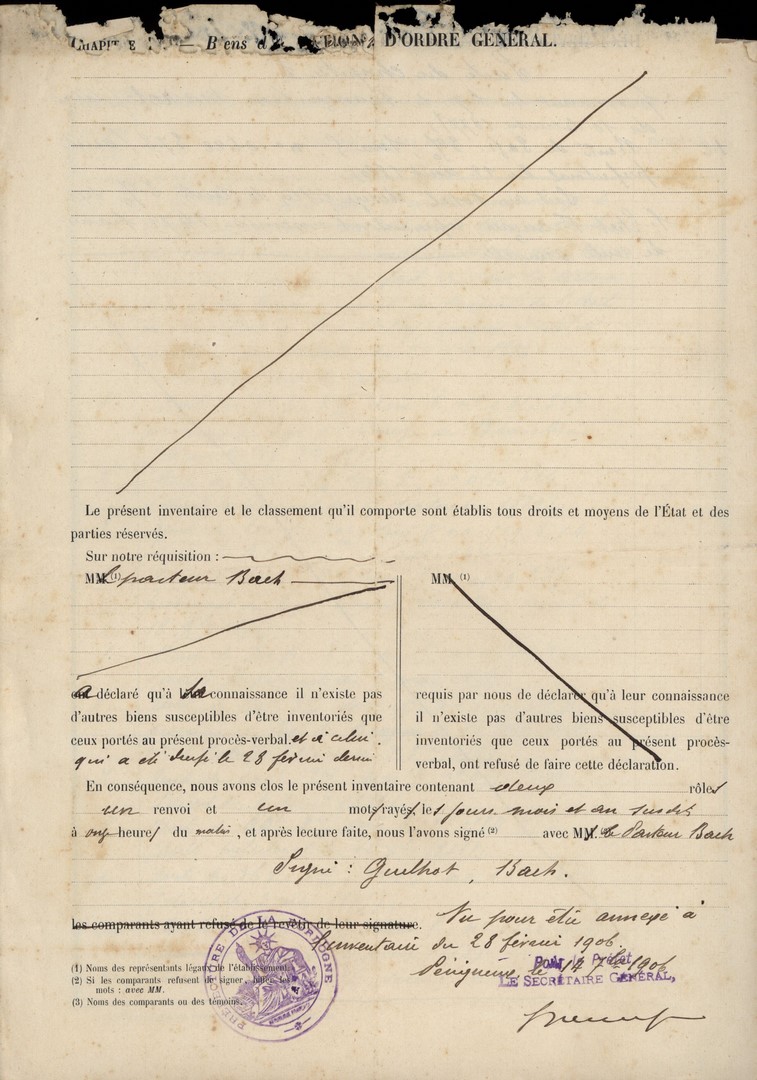 CHAPITRE — Biens d ATIONS D'ORDRE GÉNÉRAL.
Le présent inventaire et le classement qu'il comporte sont établis tous droits et moyens de l'État et des
parties réservés.
Sur notre réquisition :
MM. (1) Le pasteur Bach
a déclaré qu'à sa connaissance il n'existe pas
d'autres biens susceptibles d'être inventoriés que
ceux portés au présent procès-verbal et à celui
qui a été dressé le 28 février dernier
MM. (1)
requis par nous de déclarer qu'à leur connaissance
il n'existe pas d'autres biens susceptibles d'être
inventoriés que ceux portés au présent procès-
verbal, ont refusé de faire cette déclaration.
En conséquence, nous avons clos le présent inventaire contenant deux rôles
un renvoi et un mot rayé, les jours mois et an susdits
à onze heures du matin, et après lecture faite, nous l'avons signé (2) avec M. le Pasteur Bach
Signé : Guilhot, Bach.
les comparants ayant refusé de le revêtir de leur signature.
Vu pour être annexé à
l'inventaire du 28 février 1906
Périgueux, le 14 7bre 1906
POUR LE PRÉFET
LE SECRÉTAIRE GÉNÉRAL,
PRÉFECTURE DE LA DORDOGNE
(1) Noms des représentants légaux de l'établissement.
(2) Si les comparants refusent de signer, biffer les
mots : avec MM.
(3) Noms des comparants ou des témoins.